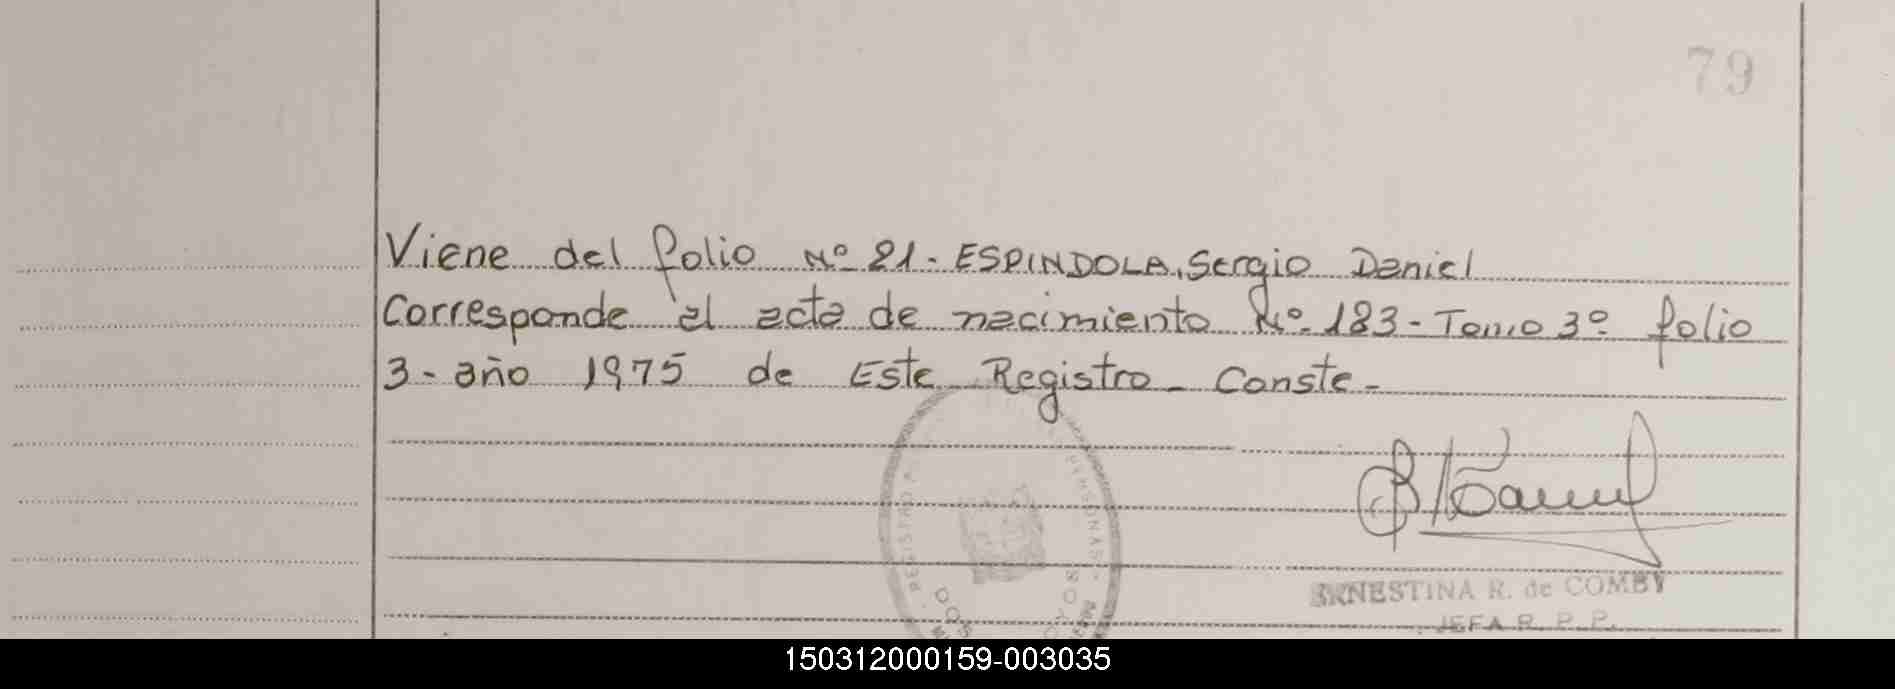 79
Viene del folio Nº 21. ESPINDOLA, Sergio Daniel
Corresponde al acta de nacimiento Nº 183 - Tomo 3º folio
3 - año 1975 de Este Registro - Conste -
ERNESTINA R. de COMBY
JEFA R. P. P.
REGISTRO
PERSONAS
DOS
OYOS
150312000159-003035